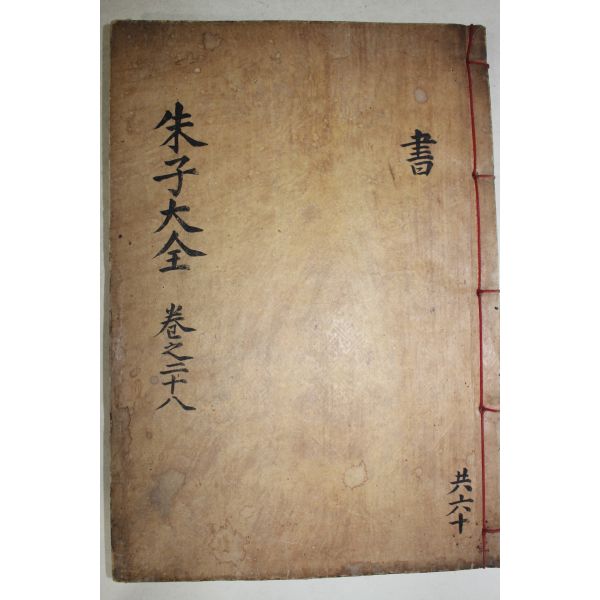 書
朱子大全 卷之二十八
共六十